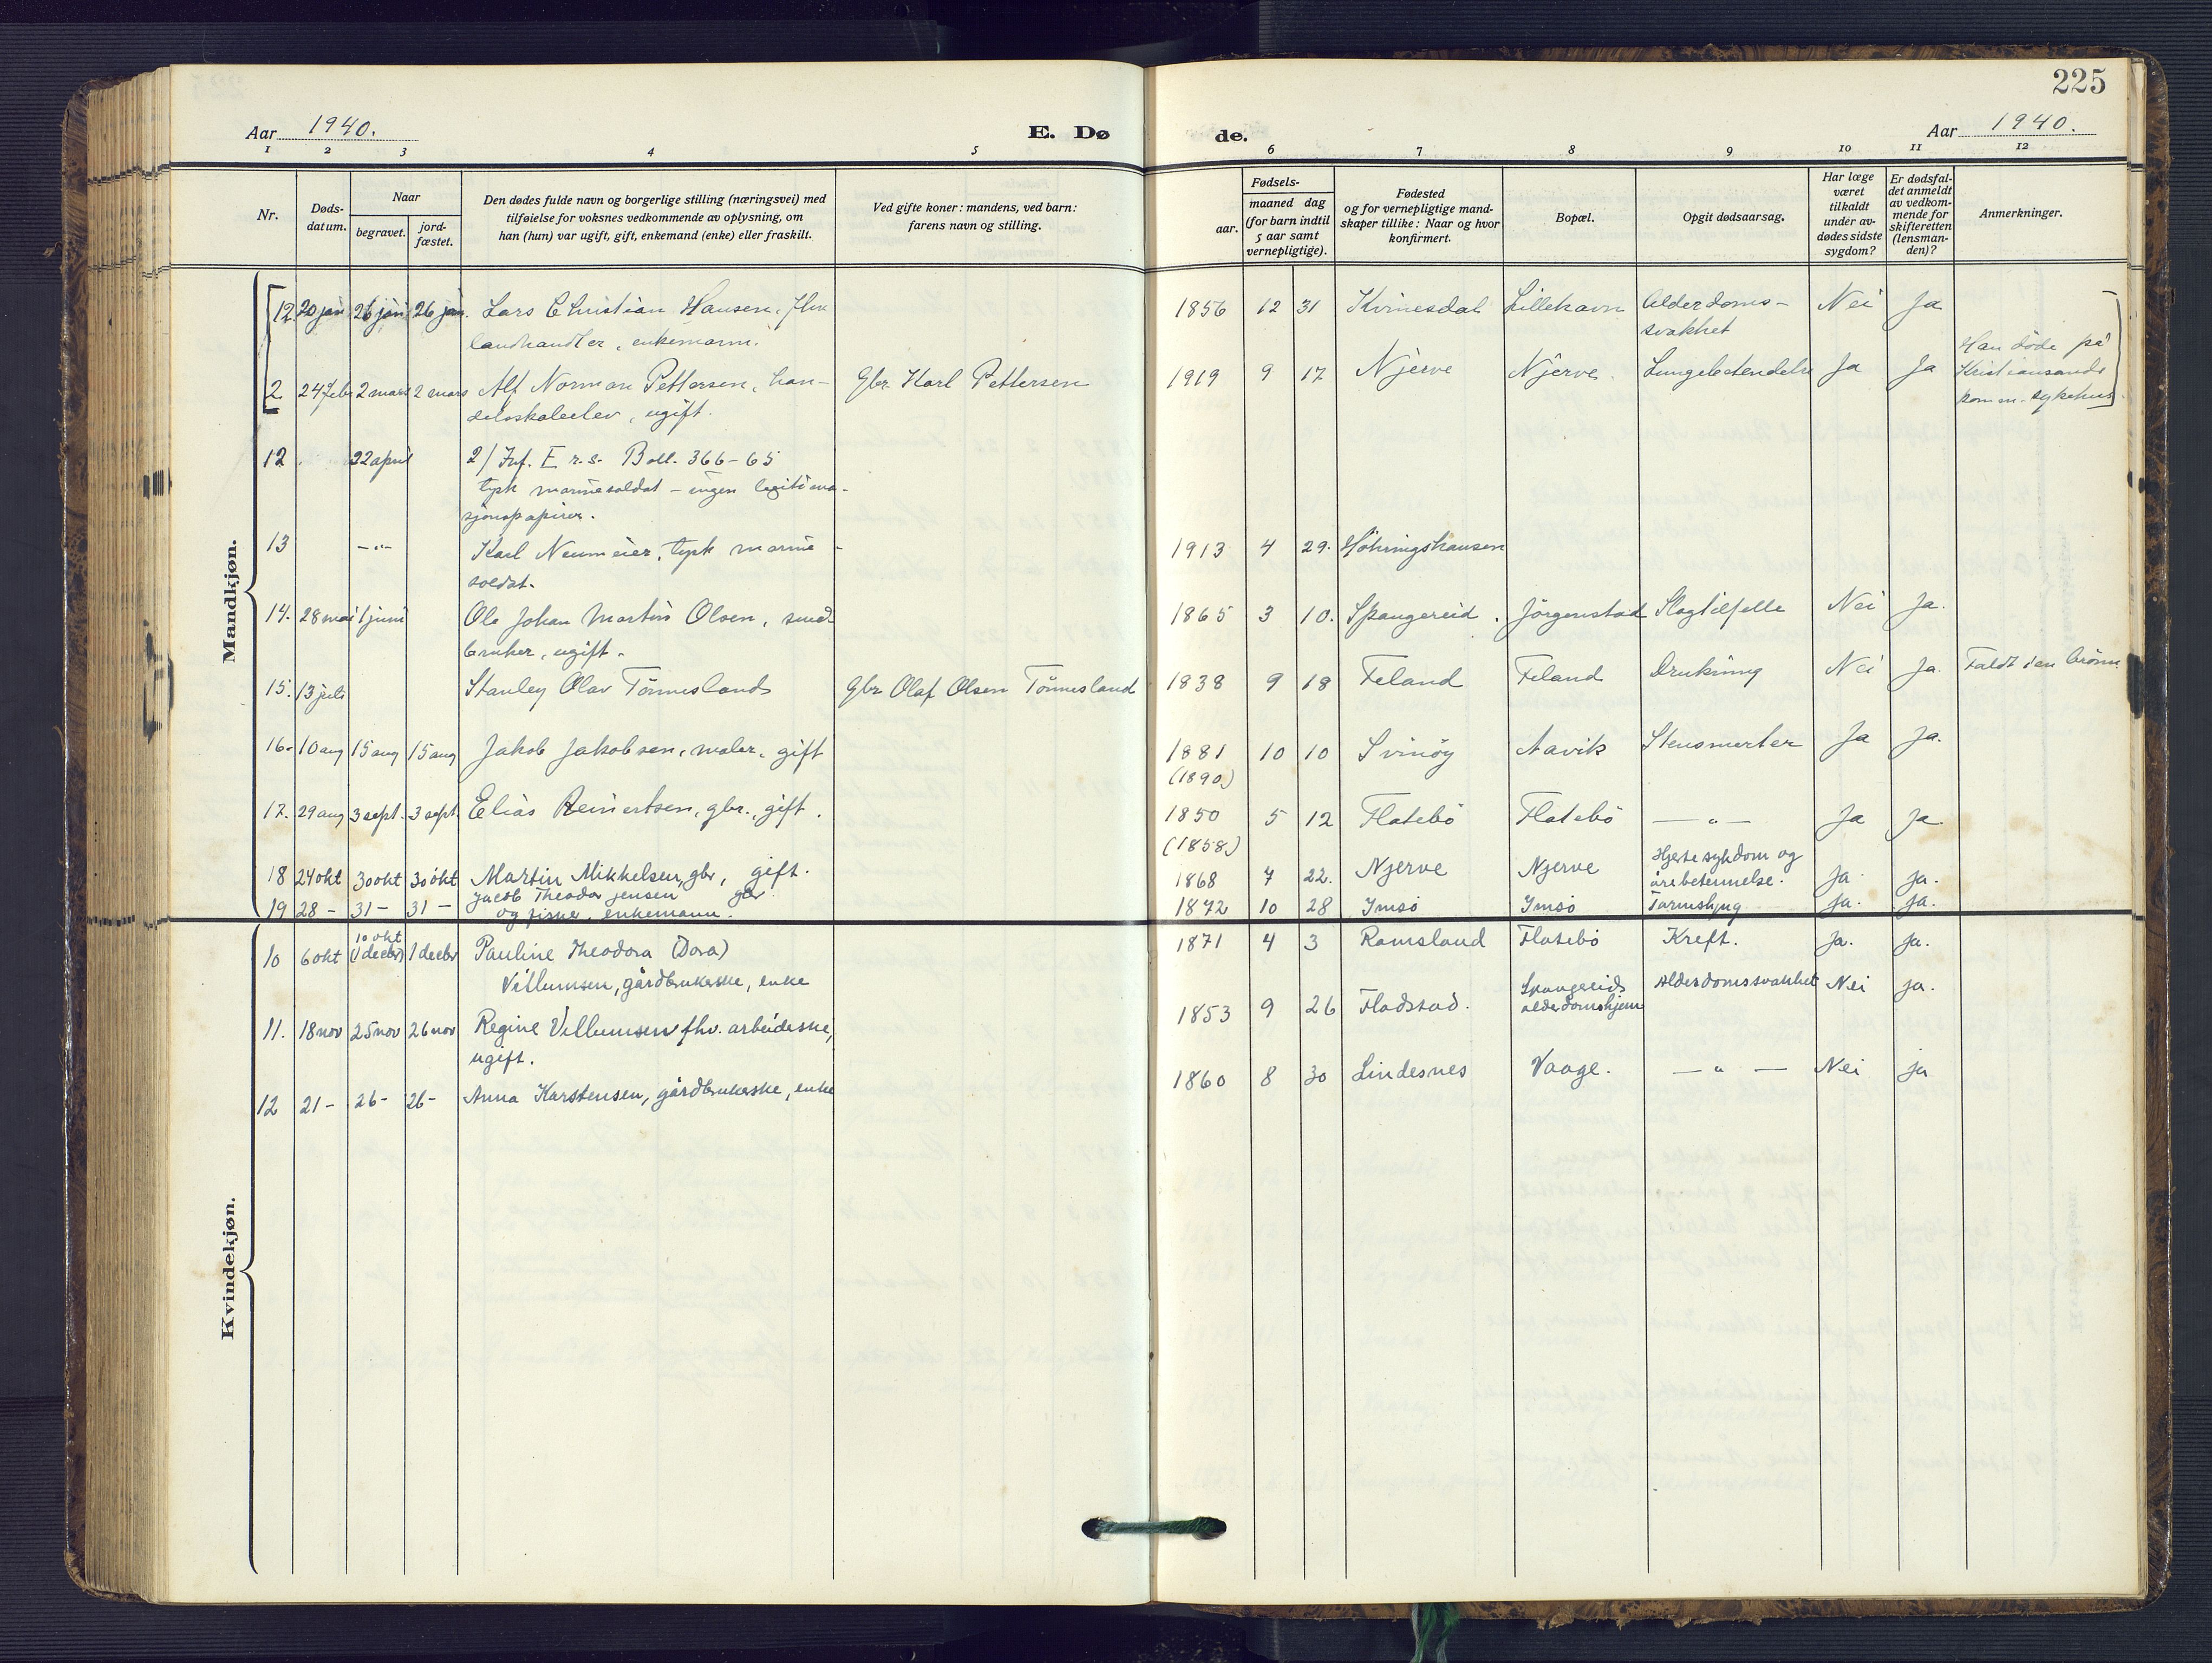 225
Aar 1940.
E. Dø
de.
Aar 1940.
1 2 3 4 5 6 7 8 9 10 11 12
Nr.
Døds-
datum.
Naar
begravet.
jord-
fæstet.
Den dødes fulde navn og borgerlige stilling (næringsvei) med
tilføielse for voksnes vedkommende av oplysning, om
han (hun) var ugift, gift, enkemand (enke) eller fraskilt.
Ved gifte koner: mandens, ved barn:
farens navn og stilling.
Fødsels-
aar.
maaned dag
(for barn indtil
5 aar samt
vernepligtige).
Fødested
og for vernepligtige mand-
skaper tillike: Naar og hvor
konfirmert.
Bopæl.
Opgit dødsaarsag.
Har læge
været
tilkaldt
under av-
dødes sidste
sygdom?
Er dødsfal-
det anmeldt
av vedkom-
mende for
skifteretten
(lensman-
den)?
Anmerkninger.
Mandkjøn.
12 20 jan 26 jan 26 jan. Lars Christian Hansen, fhv. 1856 12 31 Kvinesdal Lillehavn Alderdoms- Nei Ja
landhandler, enkemann. svakhet
2 24 febr 2 mars 2 mars Alf Norman Pettersen, han- Gbr Karl Pettersen 1919 9 17 Njerve Njerve. Lungebetendelse Ja Ja Han døde på
delsskoleelev, ugift. Kristiansands
komm. sykehus.
12 22 april 2/ Inf. E r.s. Batl. 366-65
tysk marinesoldat - ingen legitima-
sjonspapirer.
13 -"- Karl Neumeier, tysk marine- 1913 4 29. Höhringshausen
soldat.
14. 28 mai 1 juni Ole Johan Martin Olsen, små- 1865 3 10. Spangereid. Jörgenstad Slagtilfelle Nei Ja.
bruker, ugift.
15. 13 juli Stanley Olav Tönnesland Gbr Olaf Olsen Tönnesland 1938 9 18 Feland Feland Drukning Nei Ja. Faldt i en brönn
16. 10 aug 15 aug 15 aug Jakob Jakobsen, maler, gift 1881 10 10 Svinöy Aavik Stensmerter Ja Ja.
(1890)
17. 29 aug 3 sept. 3 sept. Elias Reinertsen, gbr., gift. 1850 5 12 Flatebö Flatebö -"- Ja Ja
(1858)
18 24 okt 30 okt 30 okt Martin Mikkelsen, gbr, gift. 1868 7 22. Njerve Njerve Hjertesykdom og
årebetennelse. Ja. ja.
19 28 - 31 - 31 - Jacob Theodor Jensen gbr 1872 10 28 Imsö Imsö Tarmslyng ja. ja.
og fisker, enkemann.
Kvindekjøn.
10 6 okt 10 okt (1 decbr) 1 decbr Pauline Theodora (Dora) 1871 4 3 Ramsland Flatebö Kreft. Ja. ja.
Villumsen, gårdbrukerske, enke
11. 18 nov 25 nov 26 nov Regine Villumsen fhv. arbeiderske, 1853 9 26 Fladstad. Spangereids
alderdomshjem Alderdomssvakhet Nei ja.
ugift.
12 21 - 26 - 26 - Anna Karstensen, gårdbrukerske, enke 1860 8 30 Lindesnes Vaage. -"- Nei ja